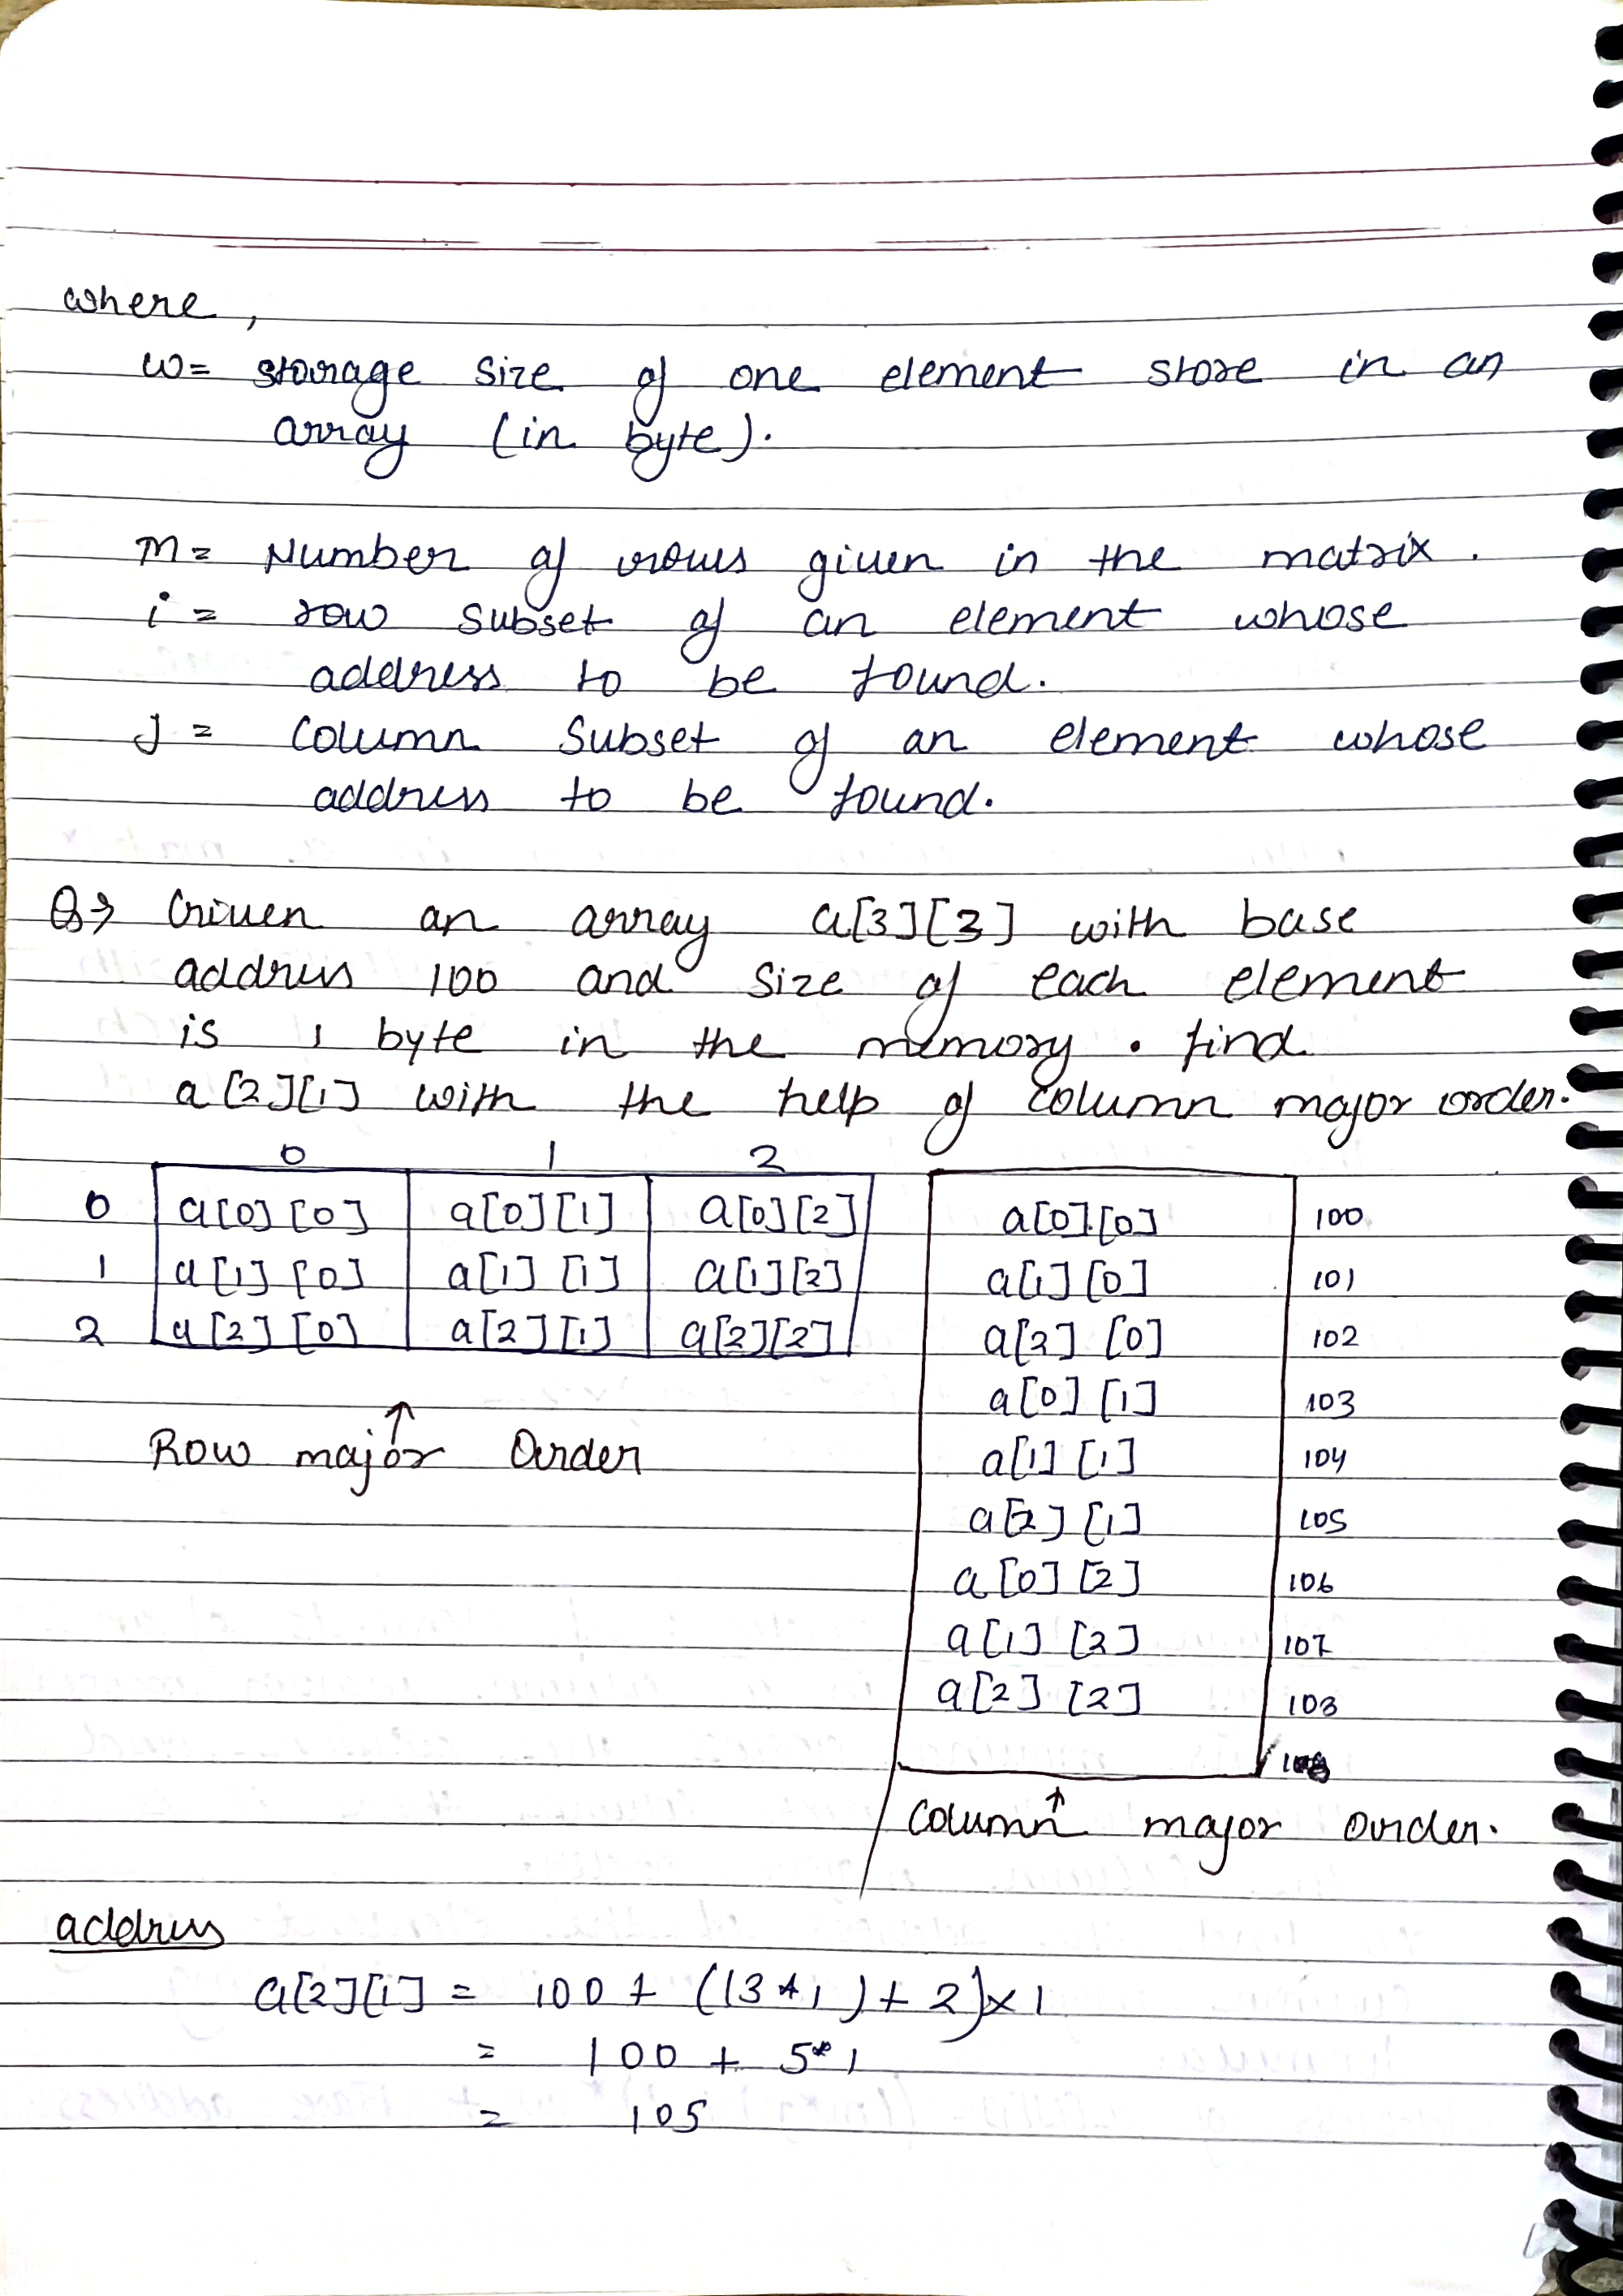 where,
w= storage size of one element store in an
array (in byte).
m= Number of rows given in the matrix.
i = row subset of an element whose
address to be found.
J = Column Subset of an element whose
address to be found.
Q→ Given an array a[3][3] with base
address 100 and size of each element
is 1 byte in the memory. find
a[2][1] with the help of column major order.
0 1 2
0 a[0][0] a[0][1] a[0][2]
1 a[1][0] a[1][1] a[1][2]
2 a[2][0] a[2][1] a[2][2]
↑
Row major Order
a[0][0] 100
a[1][0] 101
a[2][0] 102
a[0][1] 103
a[1][1] 104
a[2][1] 105
a[0][2] 106
a[1][2] 107
a[2][2] 108
↑
Column major order.
address
a[2][1] = 100 + ((3*1)+2)×1
= 100 + 5*1
= 105